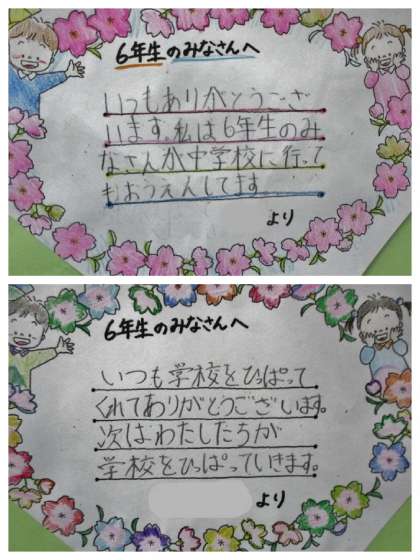 6年生のみなさんへ
いつもありがとうござ
います。私は6年生のみ
なさんが中学校に行って
もおうえんしてます
より
6年生のみなさんへ
いつも学校をひっぱって
くれてありがとうございます。
次はわたしたちが
学校をひっぱっていきます。
より